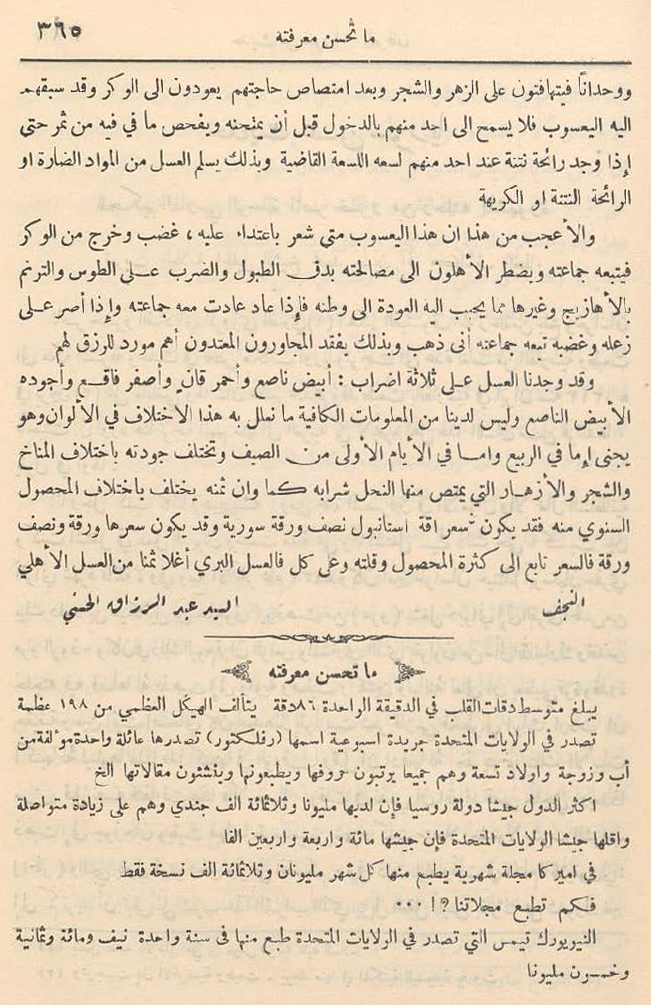 ما تحسن معرفته
٣٦٥
ووحدانًا فيتهافتون على الزهر والشجر وبعد امتصاص حاجتهم يعودون الى الوكر وقد سبقهم
اليه اليعسوب فلا يسمح الى احد منهم بالدخول قبل أن يمتحنه ويفحص ما في فيه من ثمر حتى
إذا وجد رائحة نتنة عند احد منهم لسعه اللسعة القاضية وبذلك يسلم العسل من المواد الضارة او
الرائحة النتنة او الكريهة
والأعجب من هذا ان هذا اليعسوب متى شعر باعتداء عليه، غضب وخرج من الوكر
فيتبعه جماعته ويضطر الأهلون الى مصالحته بدق الطبول والضرب على الطوس والترنم
بالأهازيج وغيرها مما يحبب اليه العودة الى وطنه فإذا عاد عادت معه جماعته وإذا أصر على
زعله وغضبه تبعه جماعته أنى ذهب وبذلك يفقد المجاورون المعتدون أهم مورد للرزق لهم
وقد وجدنا العسل على ثلاثة اضراب : أبيض ناصع وأحمر قان وأصفر فاقع وأجوده
الأبيض الناصع وليس لدينا من المعلومات الكافية ما نعلل به هذا الاختلاف في الألوان وهو
يجنى إما في الربيع واما في الأيام الأولى من الصيف وتختلف جودته باختلاف المناخ
والشجر والأزهار التي يمتص منها النحل شرابه كما وان ثمنه يختلف باختلاف المحصول
السنوي منه فقد يكون سعر اقة استانبول نصف ورقة سورية وقد يكون سعرها ورقة ونصف
ورقة فالسعر تابع الى كثرة المحصول وقلته وعلى كل فالعسل البري أغلا ثمنا من العسل الأهلي
النجف السيد عبد الرزاق الحسني
ما تحسن معرفته
يبلغ متوسط دقات القلب في الدقيقة الواحدة ٨٦ دقة يتألف الهيكل العظمي من ١٩٨ عظمة
تصدر في الولايات المتحدة جريدة اسبوعية اسمها (رفلكتور) تصدرها عائلة واحدة مؤلفة من
أب وزوجة واولاد تسعة وهم جميعا يرتبون حروفها ويطبعونها وينشئون مقالاتها الخ
اكثر الدول جيشا دولة روسيا فإن لديها مليونا وثلاثمائة الف جندي وهم على زيادة متواصلة
واقلها جيشا الولايات المتحدة فإن جيشها مائة واربعة واربعين الفا
في اميركا مجلة شهرية يطبع منها كل شهر مليونان وثلاثمائة الف نسخة فقط
فكم تطبع مجلاتنا ?! ...
النيويورك تيمس التي تصدر في الولايات المتحدة طبع منها في سنة واحدة نيف ومائة وثمانية
وخمسون مليونا